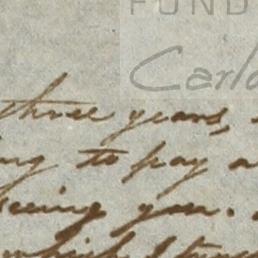 FUND
Carlo
three years,
ng to pay a
seeing you.
which I